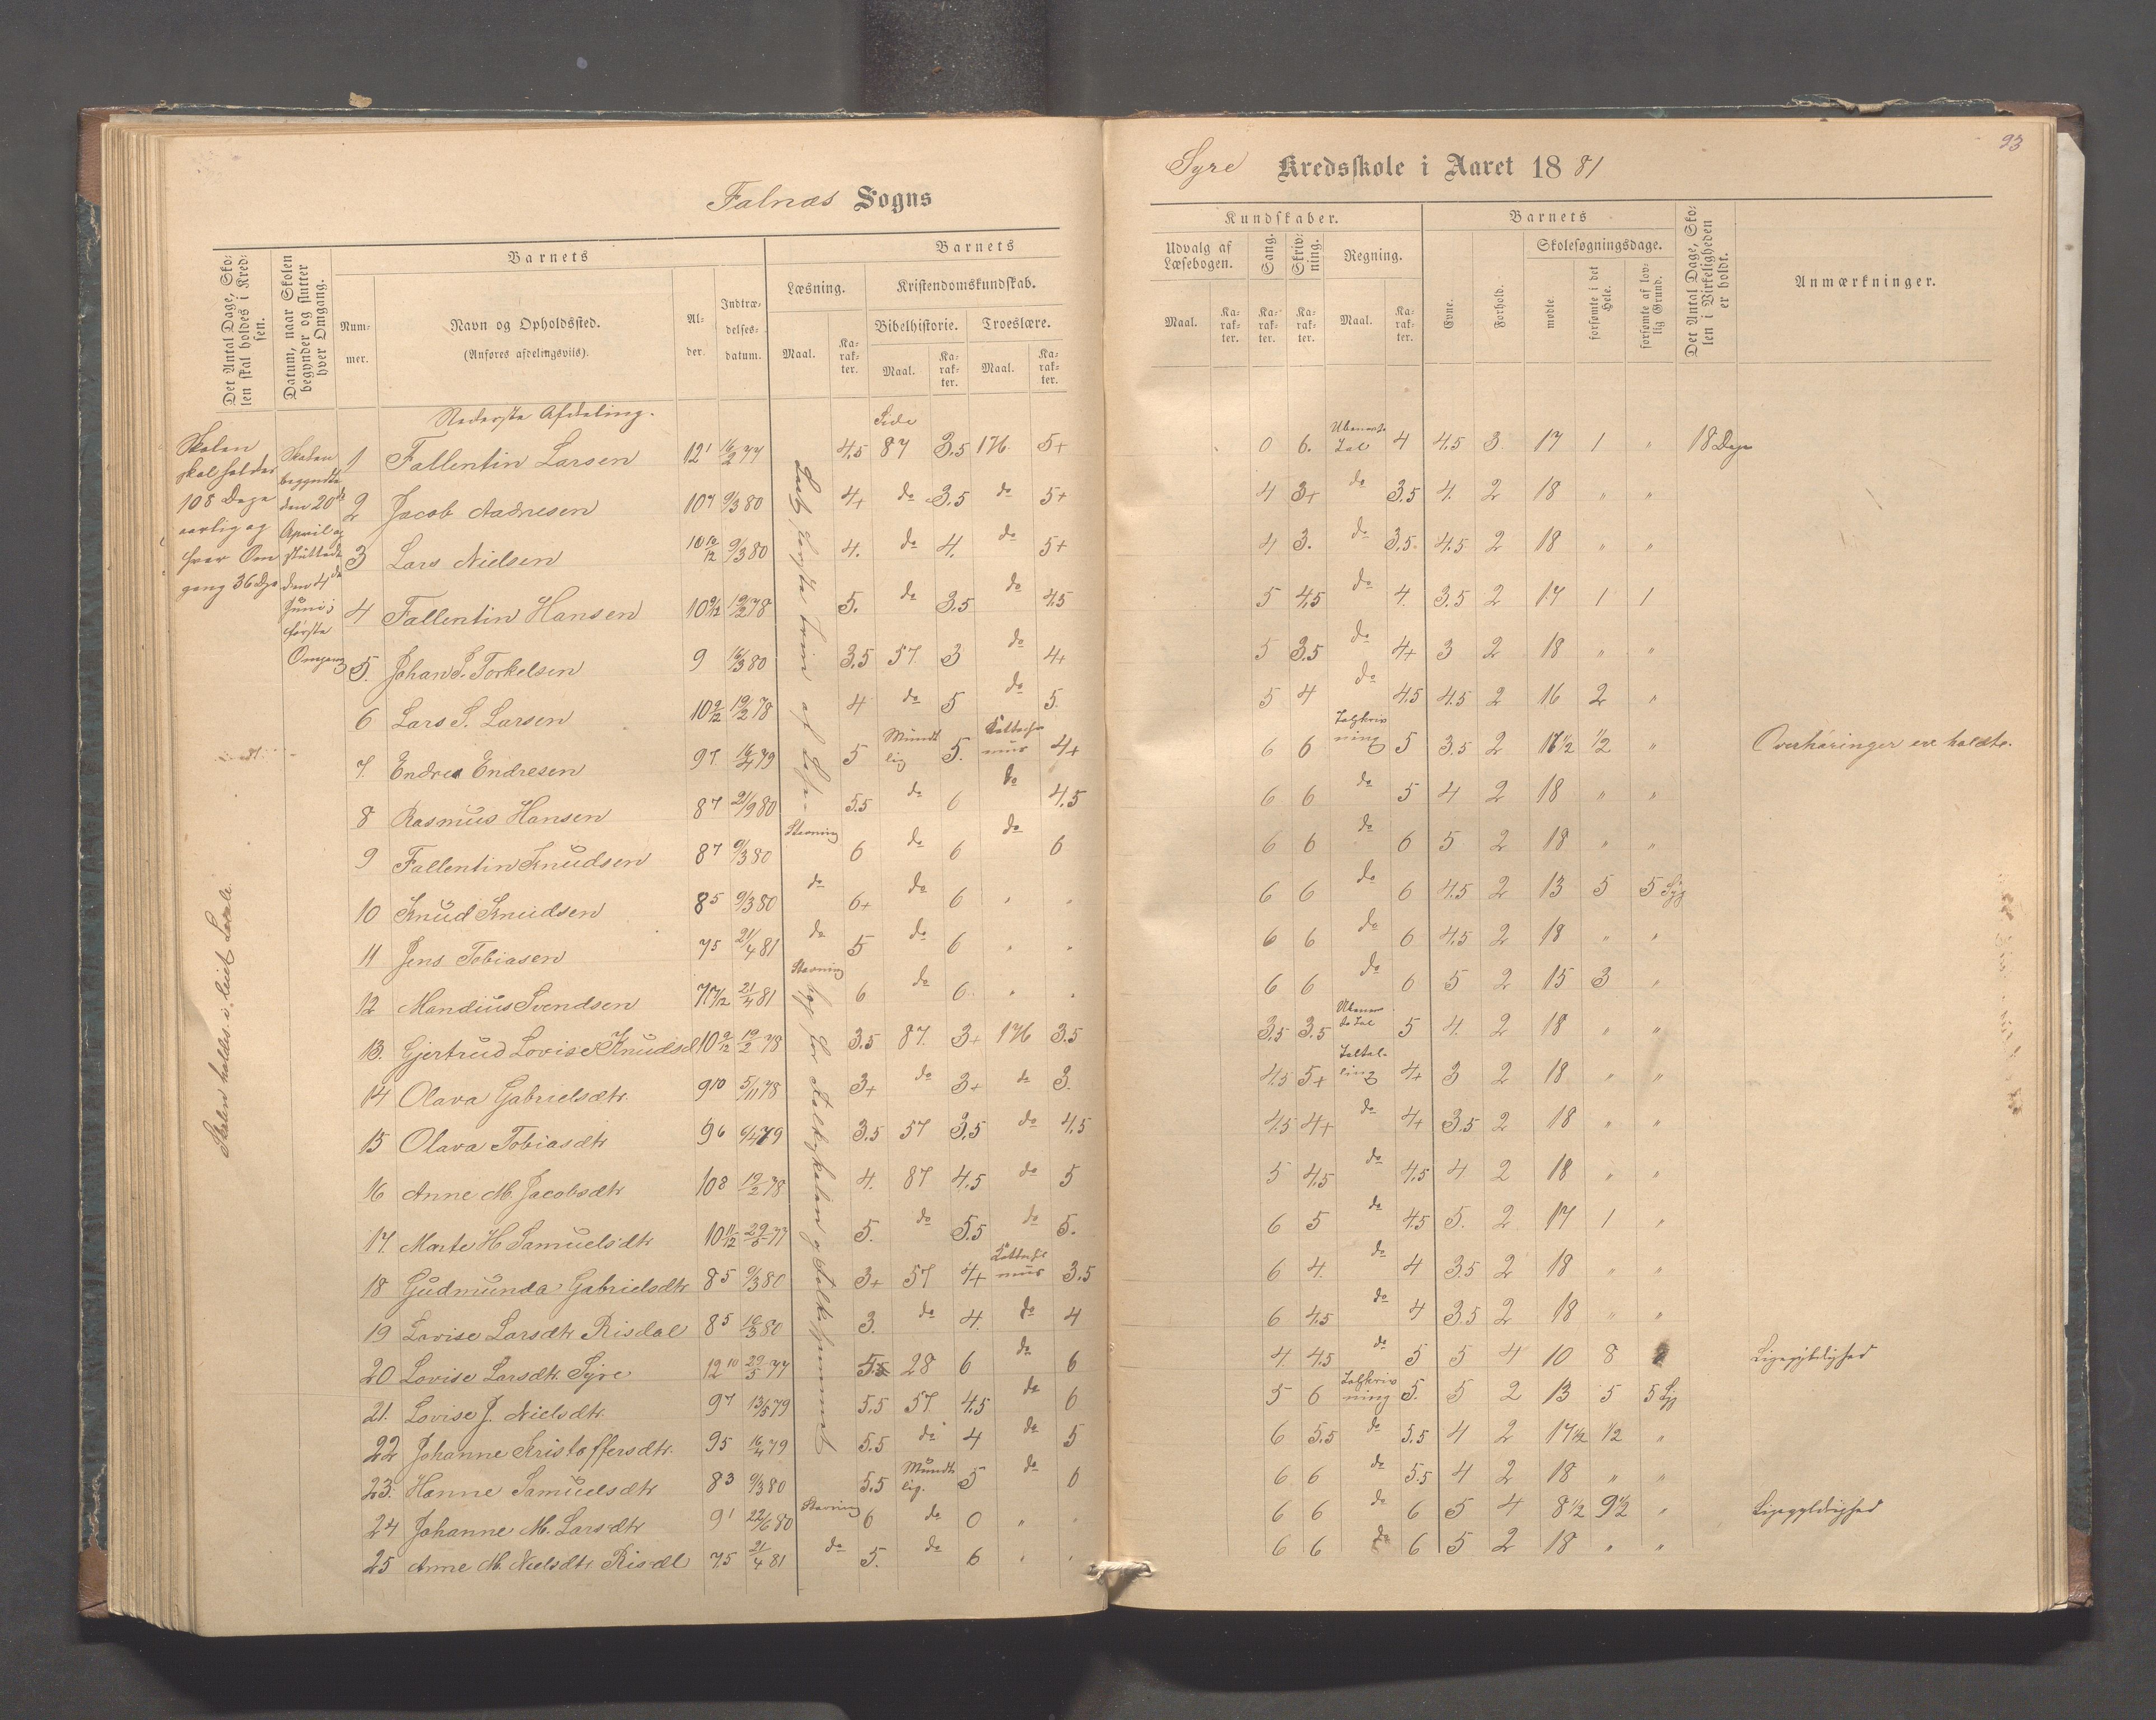 93
Falnæs Sogns
Syre Kredsskole i Aaret 1881
Det Antal Dage, Skolen skal holdes i Kredsen.
Datum, naar Skolen begynder og slutter hver Omgang.
Barnets
Num-mer.
Navn og Opholdssted.
(Anføres afdelingsviis).
Al-der.
Indtræ-delses-datum.
Barnets
Læsning.
Maal.
Ka-rak-ter.
Kristendomskundskab.
Bibelhistorie.
Maal.
Ka-rak-ter.
Troeslære.
Maal.
Ka-rak-ter.
Kundskaber.
Udvalg af Læsebogen.
Maal.
Ka-rak-ter.
Sang.
Ka-rak-ter.
Skriv-ning.
Ka-rak-ter.
Regning.
Maal.
Ka-rak-ter.
Barnets
Evne.
Forhold.
Skolesøgningsdage.
mødte.
forsømte i det Hele.
forsømte af lovlig Grund.
Det Antal Dage, Skolen i Virkeligheden er holdt.
Anmærkninger.
Nederste Afdeling.
Side
Skolen
skal holdes
108 Dage
aarlig og
hver Om
gang 36 Dge
Skolen
begyndte
den 20de
April og
sluttede
den 4de
Juni i
første
Omgang
Skolen holdes i leiet Locale.
1 Fallentin Larsen 12 1 16/2 77 4.5 87 3.5 176 5+ 0 6. Ubenævnte Tal 4 4.5 3 17 1 " 18 Dage
2 Jacob Aadnesen 10 7 9/3 80 4+ do 3.5 do 5+ 4 3+ do 3.5 4. 2 18 " "
3 Lars Nielsen 10 10/12 9/3 80 4. do 4. do 5+ 4 3. do 3.5 4.5 2 18 " "
4 Fallentin Hansen 10 9/12 19/2 78 5. do 3.5 do 4.5 5 4.5 do 4. 3.5 2 17 1 1
5. Johan T. Torkelsen 9 16/3 80 3.5 57 3 do 4+ 5 3.5 do 4+ 3 2 18 " "
6 Lars S. Larsen 10 9/12 19/2 78 4 do 5 do 5. 5 4 do 4.5 4.5 2 16 2 "
7. Endre Endresen 9 7 16/4 79 5 Mundtlig 5. 4+ 6 6 Talskrivning 5 3.5 2 17 1/2 1/2 " Overhøringer ere holdte.
8 Rasmus Hansen 8 7 21/9 80 5.5 do 6 do 4.5 6 6 do 5 4 2 18 " "
9 Fallentin Knudsen 8 7 9/3 80 Stavning 6 do 6 do 6 6 6 do 6 5 2 18 " "
10 Knud Knudsen 8 5 9/3 80 do 6+ do 6 " " 6 6 do 6 4.5 2 13 5 5 Syg
11 Jens Tobiasen 7 5 21/4 81 do 5 do 6 " " 6 6 do 6 4.5 2 18 " "
12 Mandius Svendsen 7 7/12 21/4 81 Stavning 6 do 6. " " 6 6 do 6 5 2 15 3 "
13. Gjertrud Lovise Knudsd 10 9/12 19/2 78 3.5 87. 3+ 176 3.5 3.5 3.5 Ubenævnte Tal 5 4. 2 18 " "
14 Olava Gabrielsdtr. 9 10 5/11 78 3+ do 3+ do 3. 4.5 5+ Taltalling 4+ 3 2 18 " "
15 Olava Tobiasdtr 9 6 3.5 57 3.5 do 4.5 4.5 4+ do 4+ 3.5 2 18 " "
16 Anne M. Jacobsdtr 10 8 19/2 78 4. 87 4.5 do 5 5 4.5 do 4.5 4 2 18 " "
17. Marte H Samuelsdtr 10 11/12 29/5 77 5. do 5.5 do 5. 6 5 do 4.5 5. 2 17 1 "
18 Gudmunda Gabrielsdtr 8 5 9/3 80 3+ 57 4+ 3.5 6 4. do 4 3.5 2 18 " "
19 Lovise Larsdtr Risdal 8 5 16/3 80 3. do 4. do 4 6 4.5 do 4 3.5 2 18 " "
20 Lovise Larsdtr. Syre 12 10 29/5 77 5.5 28 6 do 6 4. 4.5 do 5 5 4 10 8 Ligegyldighed
21. Lovise J. Nielsdtr. 9 7 13/5 79 5.5 57 4.5 do 6 5 6 Talskrivning 5. 5 2 13 5 5 Syg
22 Johanne Kristoffersdtr. 9 5 16/4 79 5.5 do 4 do 5 6 5.5 do 5.5 4 2 17 1/2 1/2 "
23. Hanne Samuelsdtr 8 3 9/3 80 5.5 Mundtlig. 5 do 6 6 6 do 5.5 4 2 18 " "
24 Johanne M. Larsdtr 9 1 22/6 80 Stavning 6 do 0 " " 6 6 do 6 5 4 8 1/2 9 1/2 " Ligegyldighed
25 Anne M. Nielsdtr Risdl 7 5 21/4 81 do 5. do 6 " " 6 6 do 6 5 2 18 " "